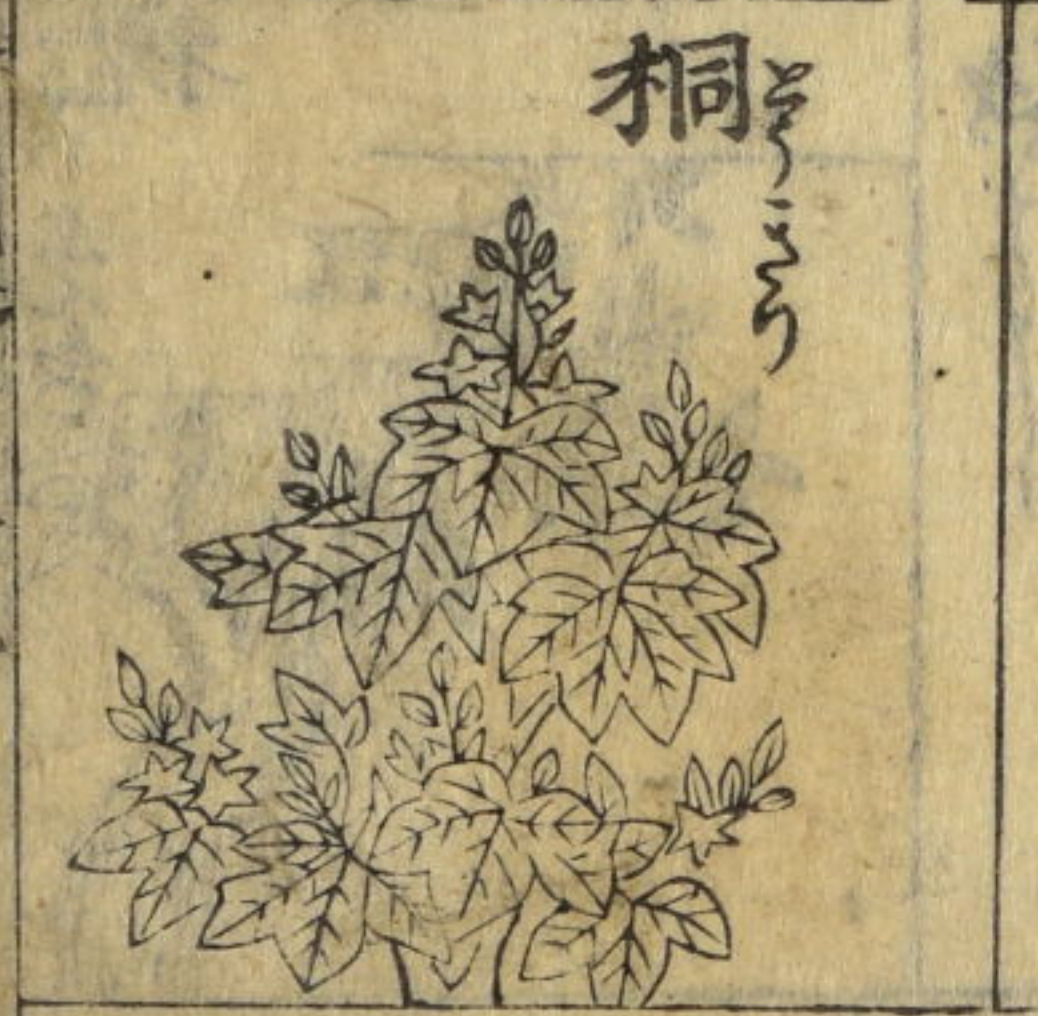 桐
とうきり